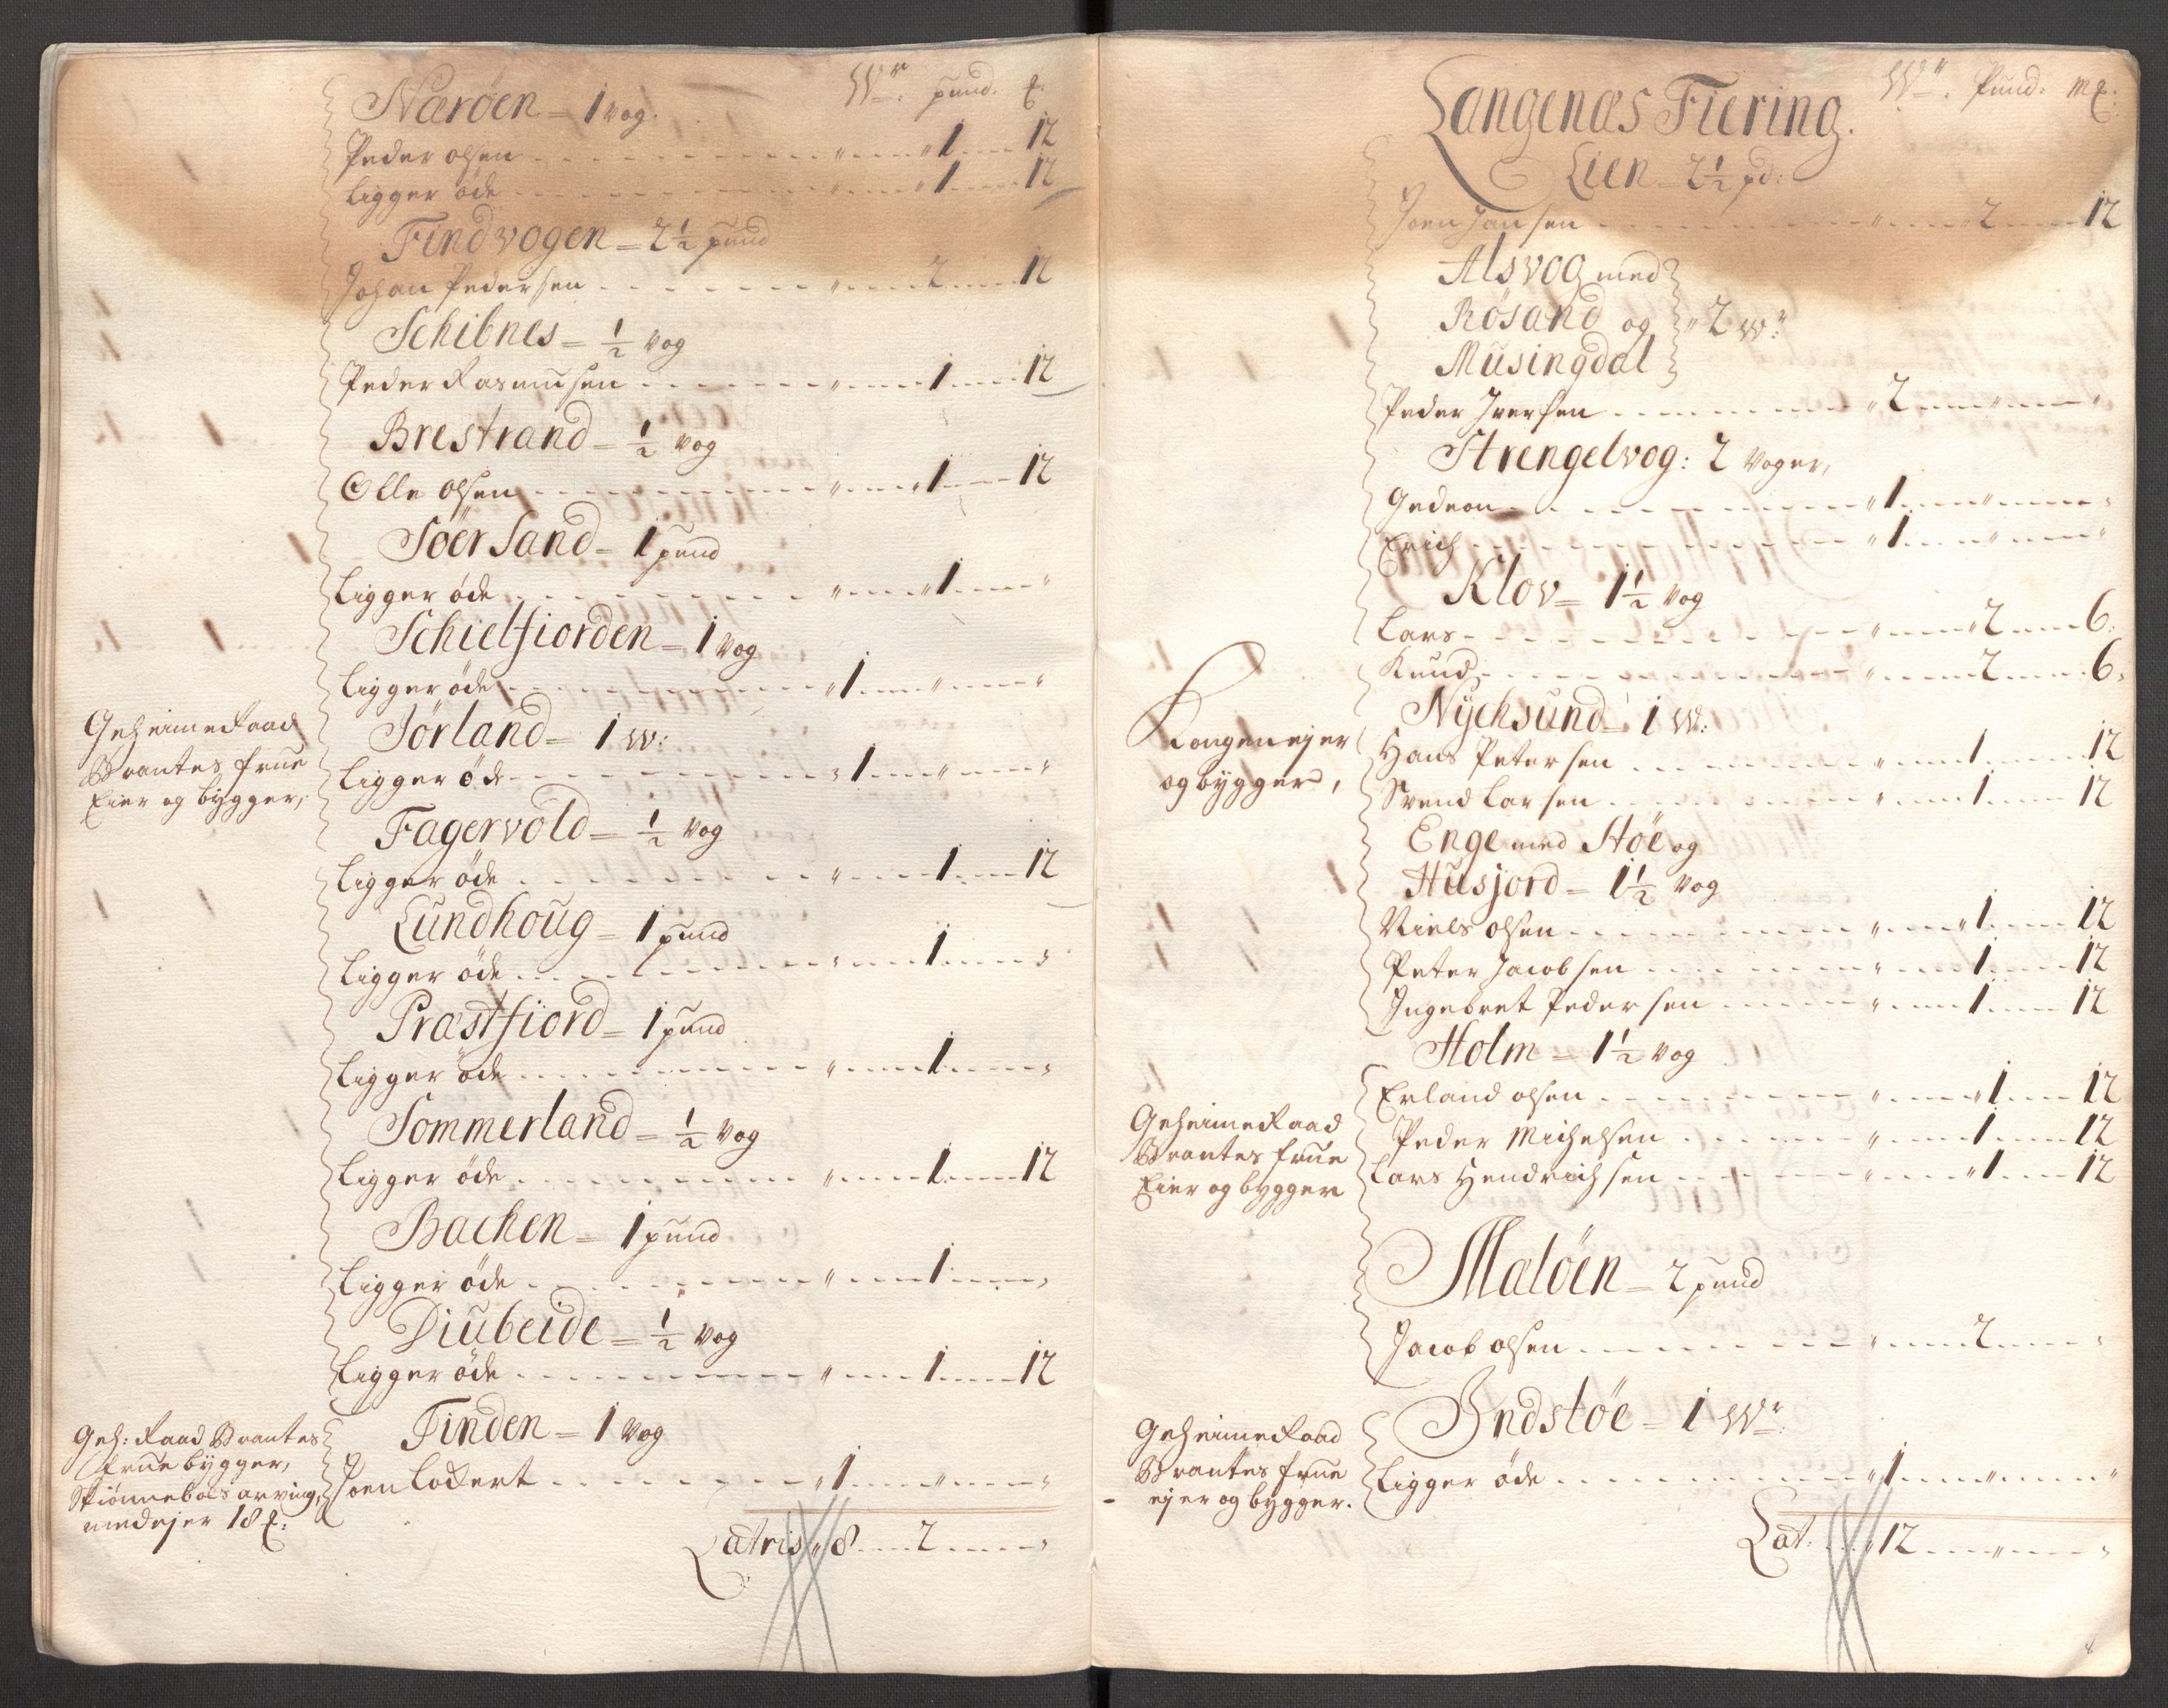 Wr. pund. ℔.
Nærøen = 1 vog.
Peder olsen " 1 12
ligger øde " 1 12
Findvogen = 2 1/2 pund
Johan Pedersen " 2 12
Schibnes = 1/2 vog
Peder Rasmusen " 1 12
Brestrand = 1/2 vog
Olle olsen " 1 12
Søer Sand = 1 pund
Ligger øde " 1 "
Schielfiorden = 1 vog
Ligger øde " 1 " "
Geheime Raad
Brantes frue
Eier og bygger,
Jørland = 1 W:
Ligger øde " 1 " "
Fagervold = 1/2 vog
Ligger øde " 1 12
Lundhoug = 1 pund
Ligger øde " 1 "
Præstfiord = 1 pund
Ligger øde " 1 "
Sommerland = 1/2 vog
Ligger øde " 1 12
Bachen = 1 pund
Ligger øde " 1 "
Diubeide = 1/2 vog
Ligger øde " 1 12
Geh: Raad Brantes
frue bygger,
Skiønneboes arving,
medejer 18 ℔:
Finden = 1 vog
Joen Lockert " 1 " "
Latris " 8 2 "
Wr. Pund. m℔.
Langenæs Fiering.
Lien = 2 1/2 pd:
Joen Jansen " 2 12
Alsvog med
Røsand og " 2 Wr
Musingdal
Peder Iversen " 2 " "
Strengelvog: 2 voger,
Gedeon " 1 " "
Erich " 1 " "
Klov = 1 1/2 vog
Lars " 2 6.
Knud " 2 6.
Kongen ejer
og bygger,
Nychsund = 1 W:
Hans Petersen " 1 12
Svend Larsen " 1 12
Enge med Støe og
Husjord = 1 1/2 vog
Niels olsen " 1 12
Peter Jacobsen " 1 12
Ingebret Pedersen " 1 12
Holm = 1 1/2 vog
Geheime Raad
Brantes frue
Eier og bygger
Erland olsen " 1 12
Peder Michelsen " 1 12
Lars Hendrichsen " 1 12
Maløen = 2 pund
Jacob olsen " 2 "
Geheime Raad
Brantes frue
ejer og bygger.
Indstøe = 1 Wr
Ligger øde " 1 " "
Lat. " 12 " "